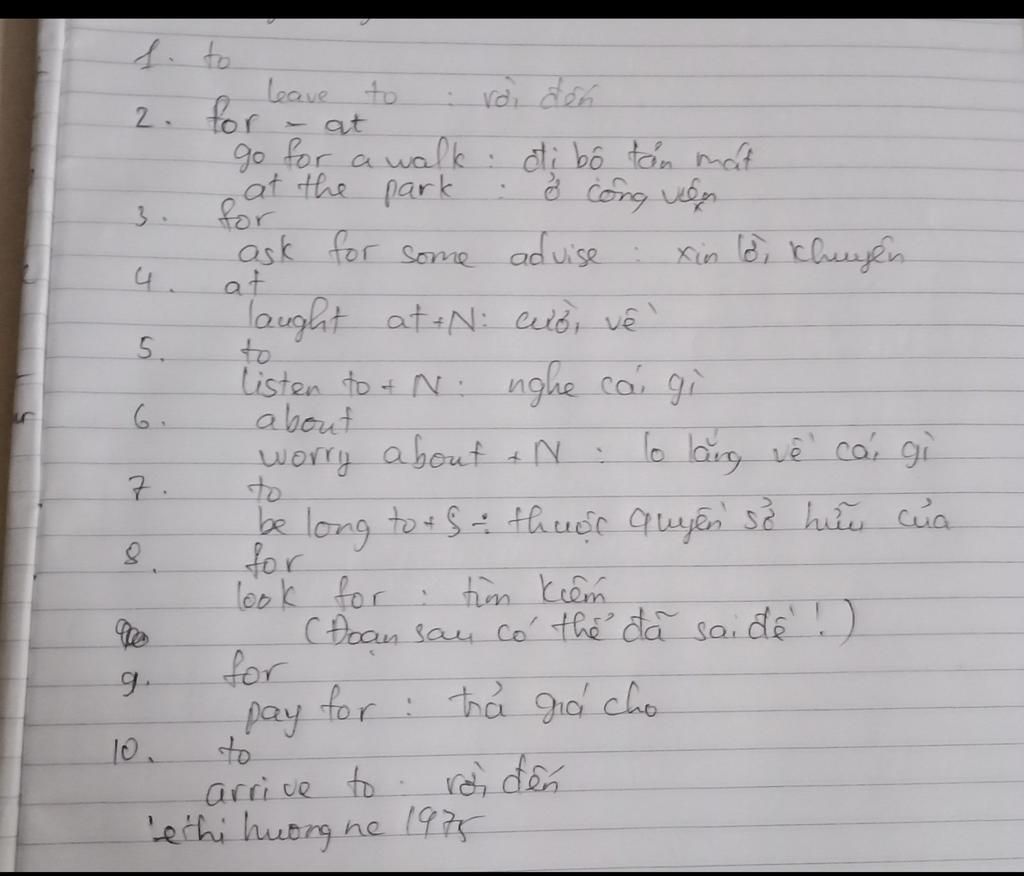 1. to
leave to : rời đến
2. for - at
go for a walk : đi bộ tản mát
at the park : ở công viên
3. for
ask for some advise : xin lời khuyên
4. at
laught at + N : cười về
5. to
listen to + N : nghe cái gì
6. about
worry about + N : lo lắng về cái gì
7. to
be long to + S : thuộc quyền sở hữu của
8. for
look for : tìm kiếm
(Đoạn sau có thể đã sai đề !)
9. for
pay for : trả giá cho
10. to
arrive to : rời đến
lethi huong ne 1975